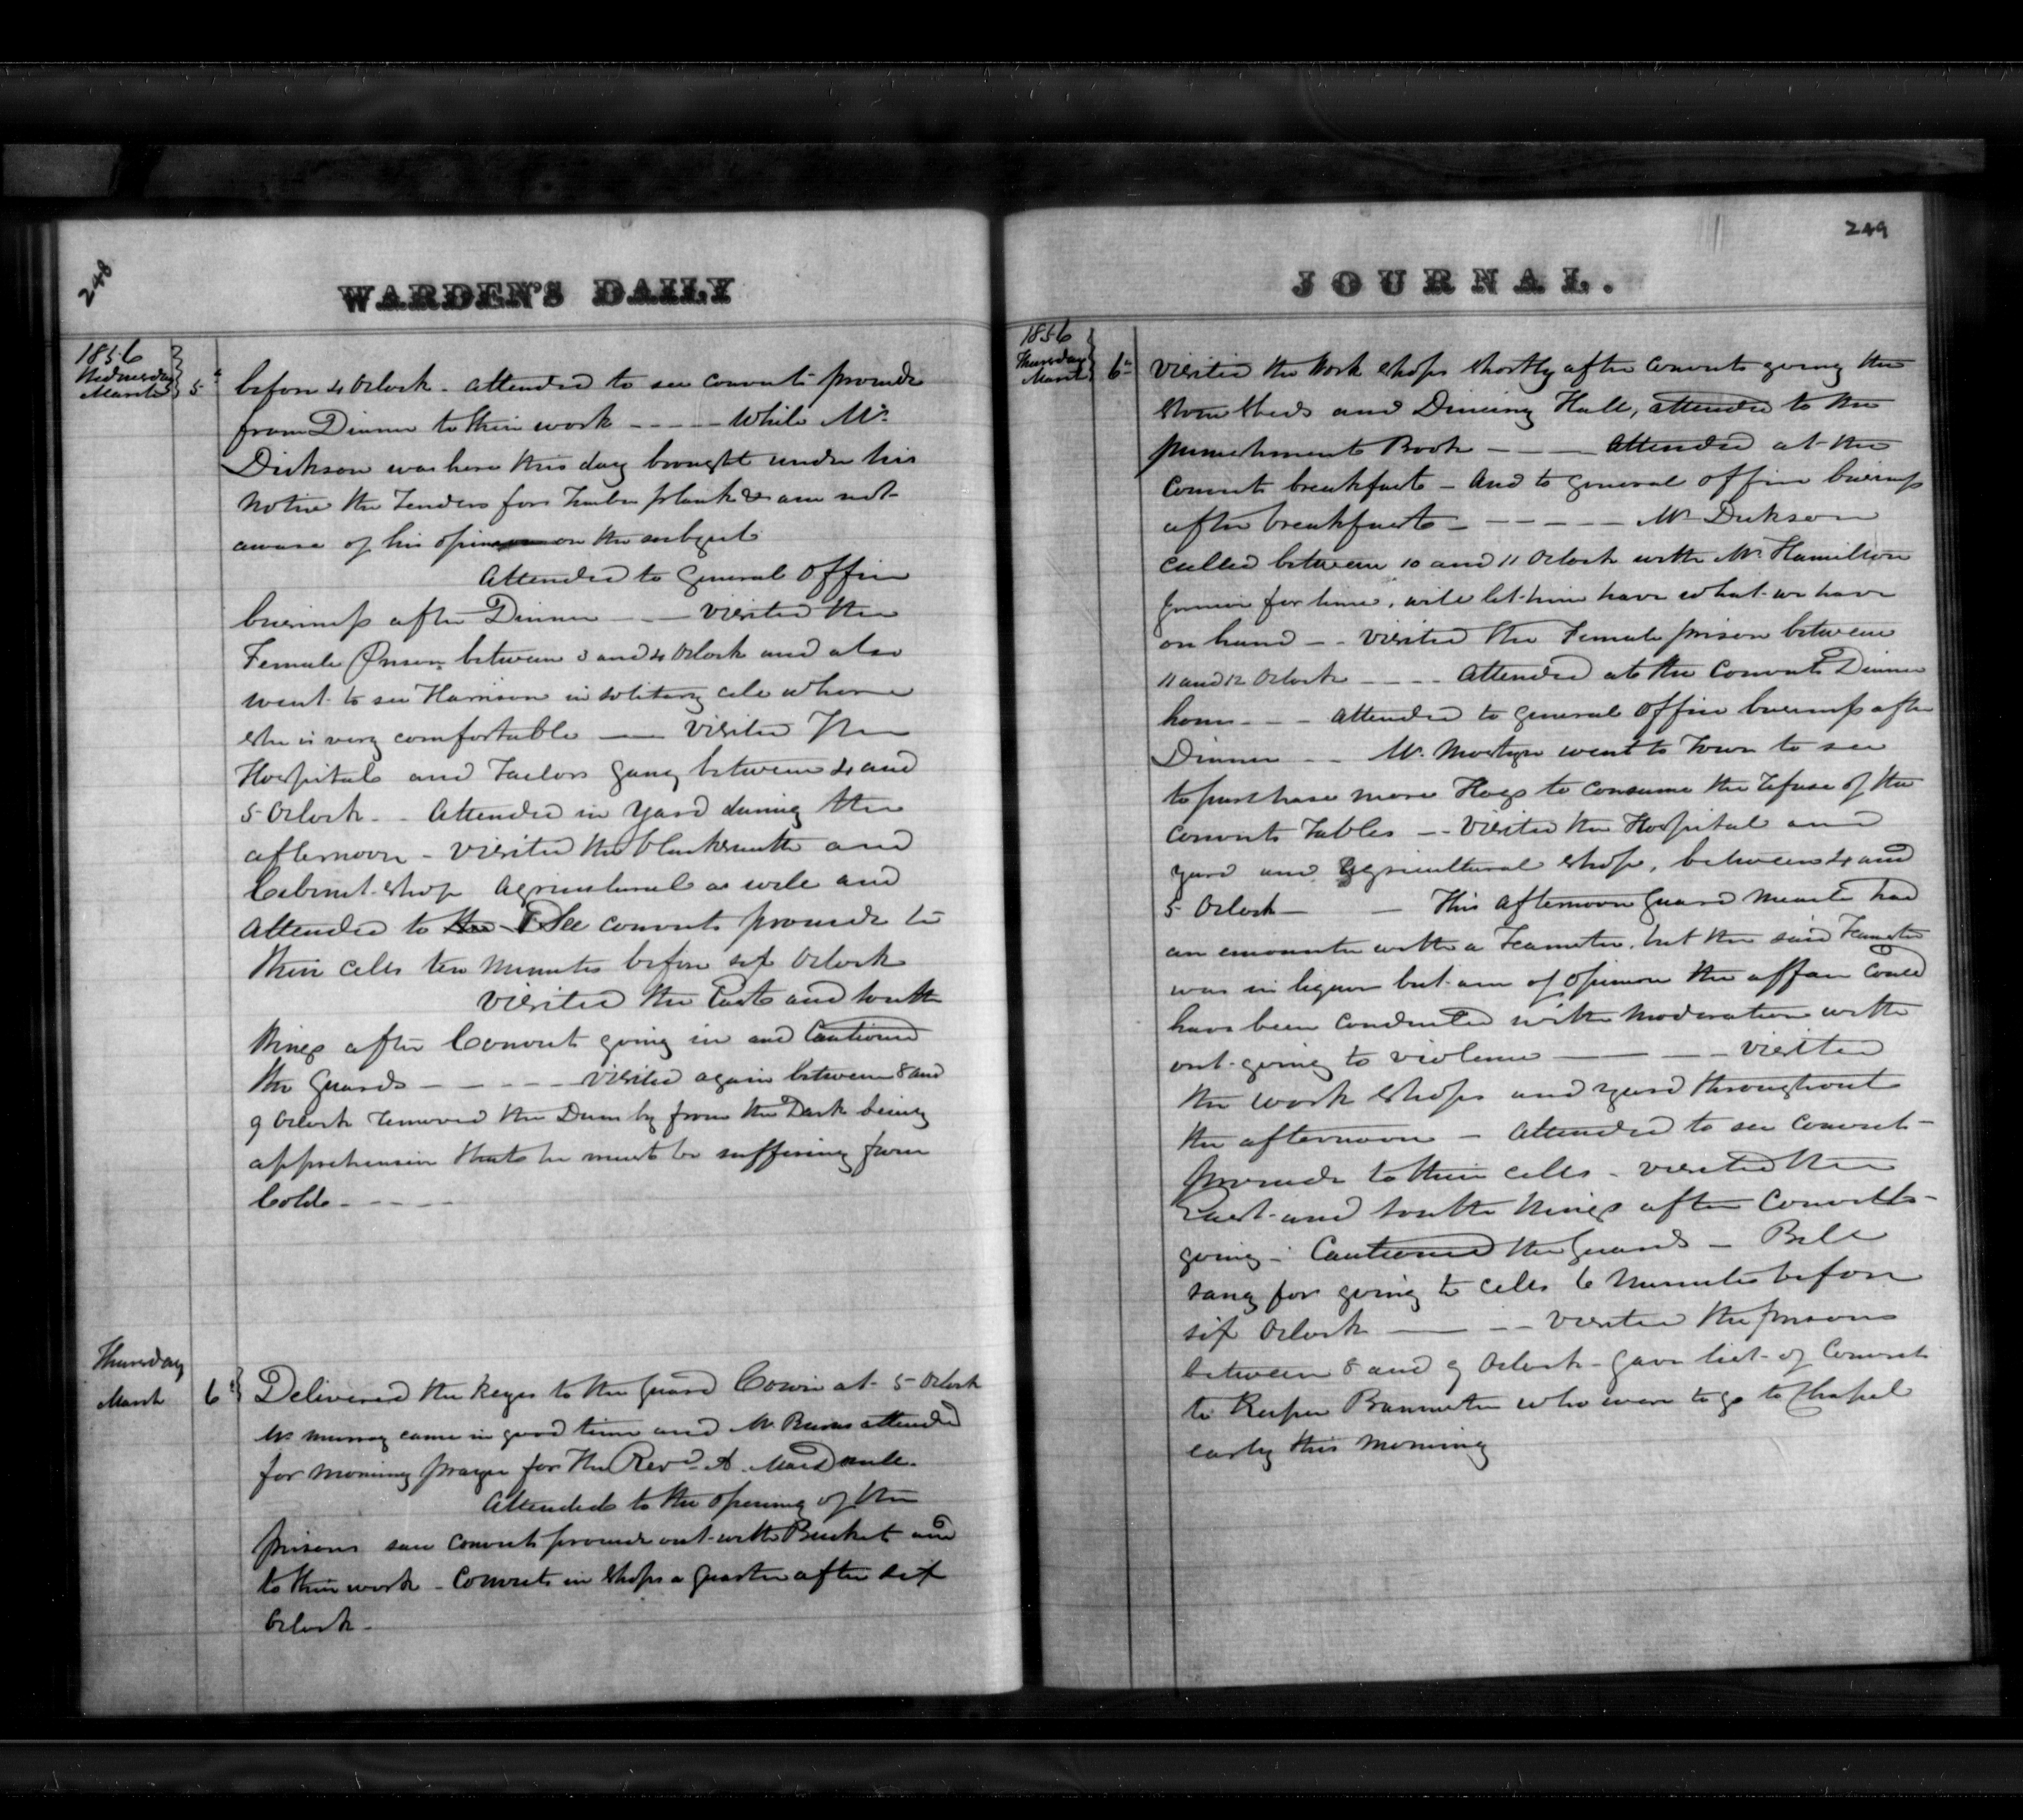 248
WARDEN'S DAILY
1856
Wednesday
March 5th
before 4 Oclock - attended to see convicts proceede
from Dinner to their work - - - - - While Mr.
Dickson was here this day brought under his
notice the Tenders for Timber plank & am not
aware of his opinion on the subject
Attended to General Office
business after Dinner - - - visited the
Female Prison between 3 and 4 Oclock and also
went to see Harrison in solitary cell where
she is very comfortable — visited The
Hospital and Tailors gang between 4 and
5 Oclock - - Attended in yard during the
afternoon - visited the blacksmith and
Cabinet shop Agricultural as well and
Attended to the See convicts proceede to
their cells ten minutes before six Oclock
visited the East and South
Wings after Convict going in and Cautioned
the Guards - - - - - visited again between 8 and
9 Oclock removed the Dumby from the Dark being
apprehensive that he must be suffering from
Cold - - - -
Thursday
March 6th
Delivered the keyes to the Guard Cowin at 5 Oclock
Mr Murray came in good time and Mr Burns attended
for morning prayer for the Revd A.
Attended to the opening of the
prisons saw convicts proceede out with Bucket and
to their work - Convicts in shops a quarter after six
Oclock -
249
JOURNAL.
1856
Thursday
March 6th
visited the work shops shortly after convicts going the
stone sheds and Dineing Hall, attended to the
punishment Book - - - Attended at the
Convicts breakfast - And to general office business
after breakfast - - - - - - Mr Dickson
called between 10 and 11 Oclock with Mr. Hamilton
for lime, will let him have what we have
on hand - - visited the Female prison between
11 and 12 Oclock - - - - Attended at the Convicts Dinner
hour - - - attended to general office business after
Dinner - - Mr. Mostyn went to Town to see
to purchase more Hogs to consume the refuse of the
Convicts Tables - - Visited the Hospital and
yard and Agricultural shop, between 4 and
5 Oclock - - This afternoon Guard had
an encounter with a Teamster, but the said Teamster
was in liquor but am of opinion the affair could
have been conducted with moderation with
out going to violence - - - - visited
the work shops and yard throughout
the afternoon - Attended to see Convict
proceede to their cells - visited the
East and South Wings after Convicts
going - Cautioned the Guards - Bell
rang for going to cells 6 Minutes before
six Oclock - - - visited the prisons
between 8 and 9 Oclock - Gave list of Convicts
to Keeper Bannister who were to go to Chapel
early this morning